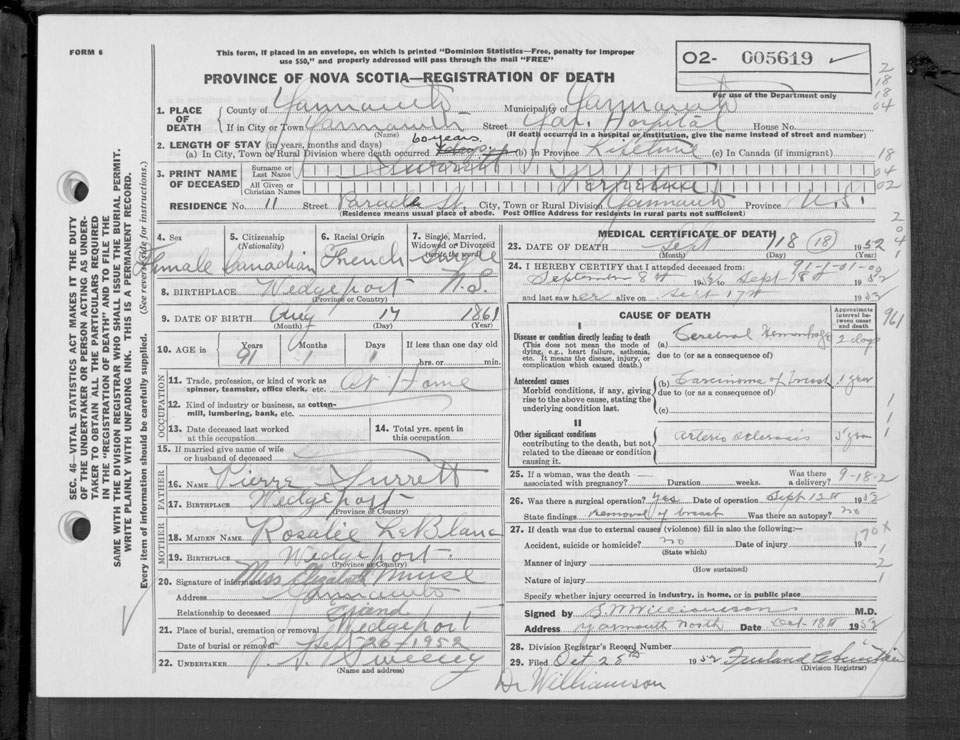 FORM 6
This form, if placed in an envelope, on which is printed "Dominion Statistics—Free, penalty for improper
use $50," and properly addressed will pass through the mail "FREE"
02- 005619
PROVINCE OF NOVA SCOTIA—REGISTRATION OF DEATH
For use of the Department only
2
18
18
04
1. PLACE OF DEATH
County of Yarmouth Municipality of Yarmouth
If in City or Town Yarmouth Street Yar. Hospital House No.
(Name) (If death occurred in a hospital or institution, give the name instead of street and number)
2. LENGTH OF STAY (in years, months and days) 60 years
(a) In City, Town or Rural Division where death occurred (b) In Province Lifetime (c) In Canada (if immigrant)
18
04
02
3. PRINT NAME OF DECEASED
Surname or Last Name Surrett
All Given or Christian Names
RESIDENCE No. 11 Street Parade St. City, Town or Rural Division Yarmouth Province N.S.
(Residence means usual place of abode. Post Office Address for residents in rural parts not sufficient)
4. Sex Female
5. Citizenship (Nationality) Canadian
6. Racial Origin French
7. Single, Married, Widowed or Divorced (write the word) Single
8. BIRTHPLACE Wedgeport N.S.
(Province or Country)
9. DATE OF BIRTH Aug 17 1861
(Month) (Day) (Year)
10. AGE in Years 91 Months 1 Days 1 If less than one day old
hrs. or min.
OCCUPATION
11. Trade, profession, or kind of work as spinner, teamster, office clerk, etc. At Home
12. Kind of industry or business, as cotton-mill, lumbering, bank, etc.
13. Date deceased last worked at this occupation
14. Total yrs. spent in this occupation
15. If married give name of wife or husband of deceased
FATHER
16. NAME Pierre Surrett
17. BIRTHPLACE Wedgeport
(Province or Country)
MOTHER
18. MAIDEN NAME Rosalie LeBlanc
19. BIRTHPLACE Wedgeport
(Province or Country)
20. Signature of informant Miss Elizabeth Muise
Address Yarmouth
Relationship to deceased Friend
21. Place of burial, cremation or removal Wedgeport
Date of burial or removal Sept-20-1952
22. UNDERTAKER Sweeney
(Name and address)
MEDICAL CERTIFICATE OF DEATH
23. DATE OF DEATH Sept 18 (18) 1952
(Month) (Day)
2
04
1
24. I HEREBY CERTIFY that I attended deceased from:
September 8th 1952 to Sept 18th 1952
and last saw her alive on Sept 17th 1952
961
CAUSE OF DEATH
Approximate interval between onset and death
I
Disease or condition directly leading to death
(This does not mean the mode of dying, e.g., heart failure, asthenia, etc. It means the disease, injury, or complication which caused death.)
(a) Cerebral Hemorrhage 2 days
due to (or as a consequence of)
Antecedent causes
Morbid conditions, if any, giving rise to the above cause, stating the underlying condition last.
(b) Carcinoma of breast 1 year
due to (or as a consequence of)
(c)
II
Other significant conditions
contributing to the death, but not related to the disease or condition causing it.
Arterio sclerosis 5 years
25. If a woman, was the death associated with pregnancy? Duration weeks. Was there a delivery? 9-18-2
26. Was there a surgical operation? Yes Date of operation Sept 12th 1952
State findings Removal of breast Was there an autopsy? no
27. If death was due to external causes (violence) fill in also the following:—
170x
Accident, suicide or homicide? no Date of injury 19
(State which)
Manner of injury
(How sustained)
Nature of injury
Specify whether injury occurred in industry, in home, or in public place
Signed by B.W. Williamson M.D.
Address Yarmouth North Date Oct 18th 1952
28. Division Registrar's Record Number
29. Filed Oct 28th 1952
(Division Registrar)
Dr Williamson
SEC. 46—VITAL STATISTICS ACT MAKES IT THE DUTY
OF THE UNDERTAKER OR PERSON ACTING AS UNDER-
TAKER TO OBTAIN ALL THE PARTICULARS REQUIRED
IN THE "REGISTRATION OF DEATH" AND TO FILE THE
SAME WITH THE DIVISION REGISTRAR WHO SHALL ISSUE THE BURIAL PERMIT.
WRITE PLAINLY WITH UNFADING INK. THIS IS A PERMANENT RECORD.
Every item of information should be carefully supplied. (See reverse side for instructions.)